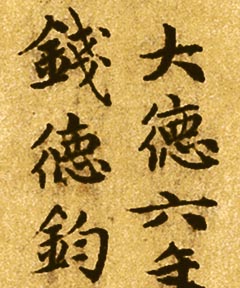 大德六年
錢德鈞